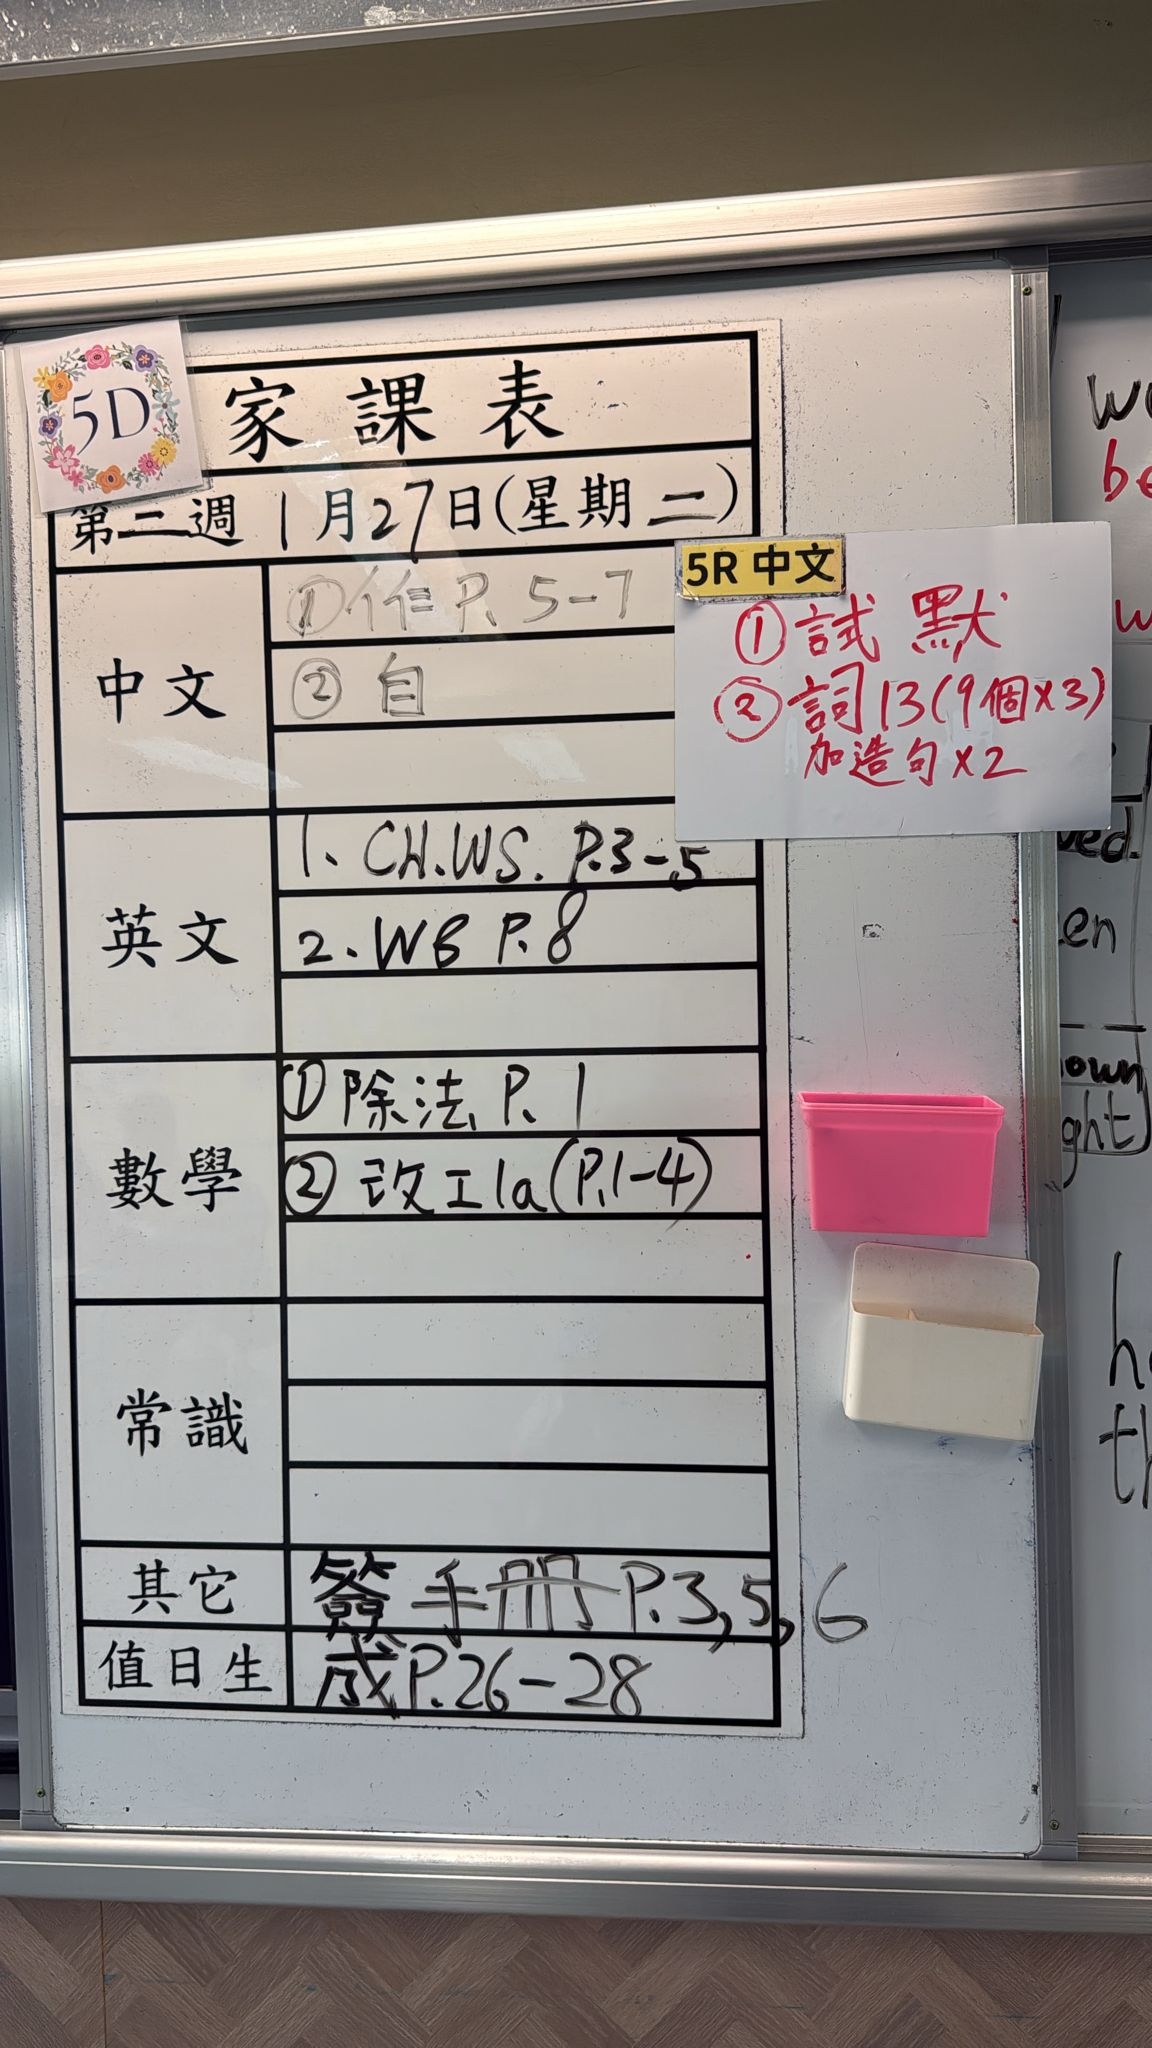 5D
家課表
第二週 1月27日(星期二)
中文
①作 P. 5-7
② 自
5R 中文
① 試 默
② 詞13(9個x3)
加造句x2
英文
1. CH.WS. P.3-5
2. WB P.8
數學
① 除法 P. 1
② 改工1a(P.1-4)
常識
其它
簽 手冊 P.3,5,6
值日生
成P.26-28
be
w
ved.
en
own
ght
h
th